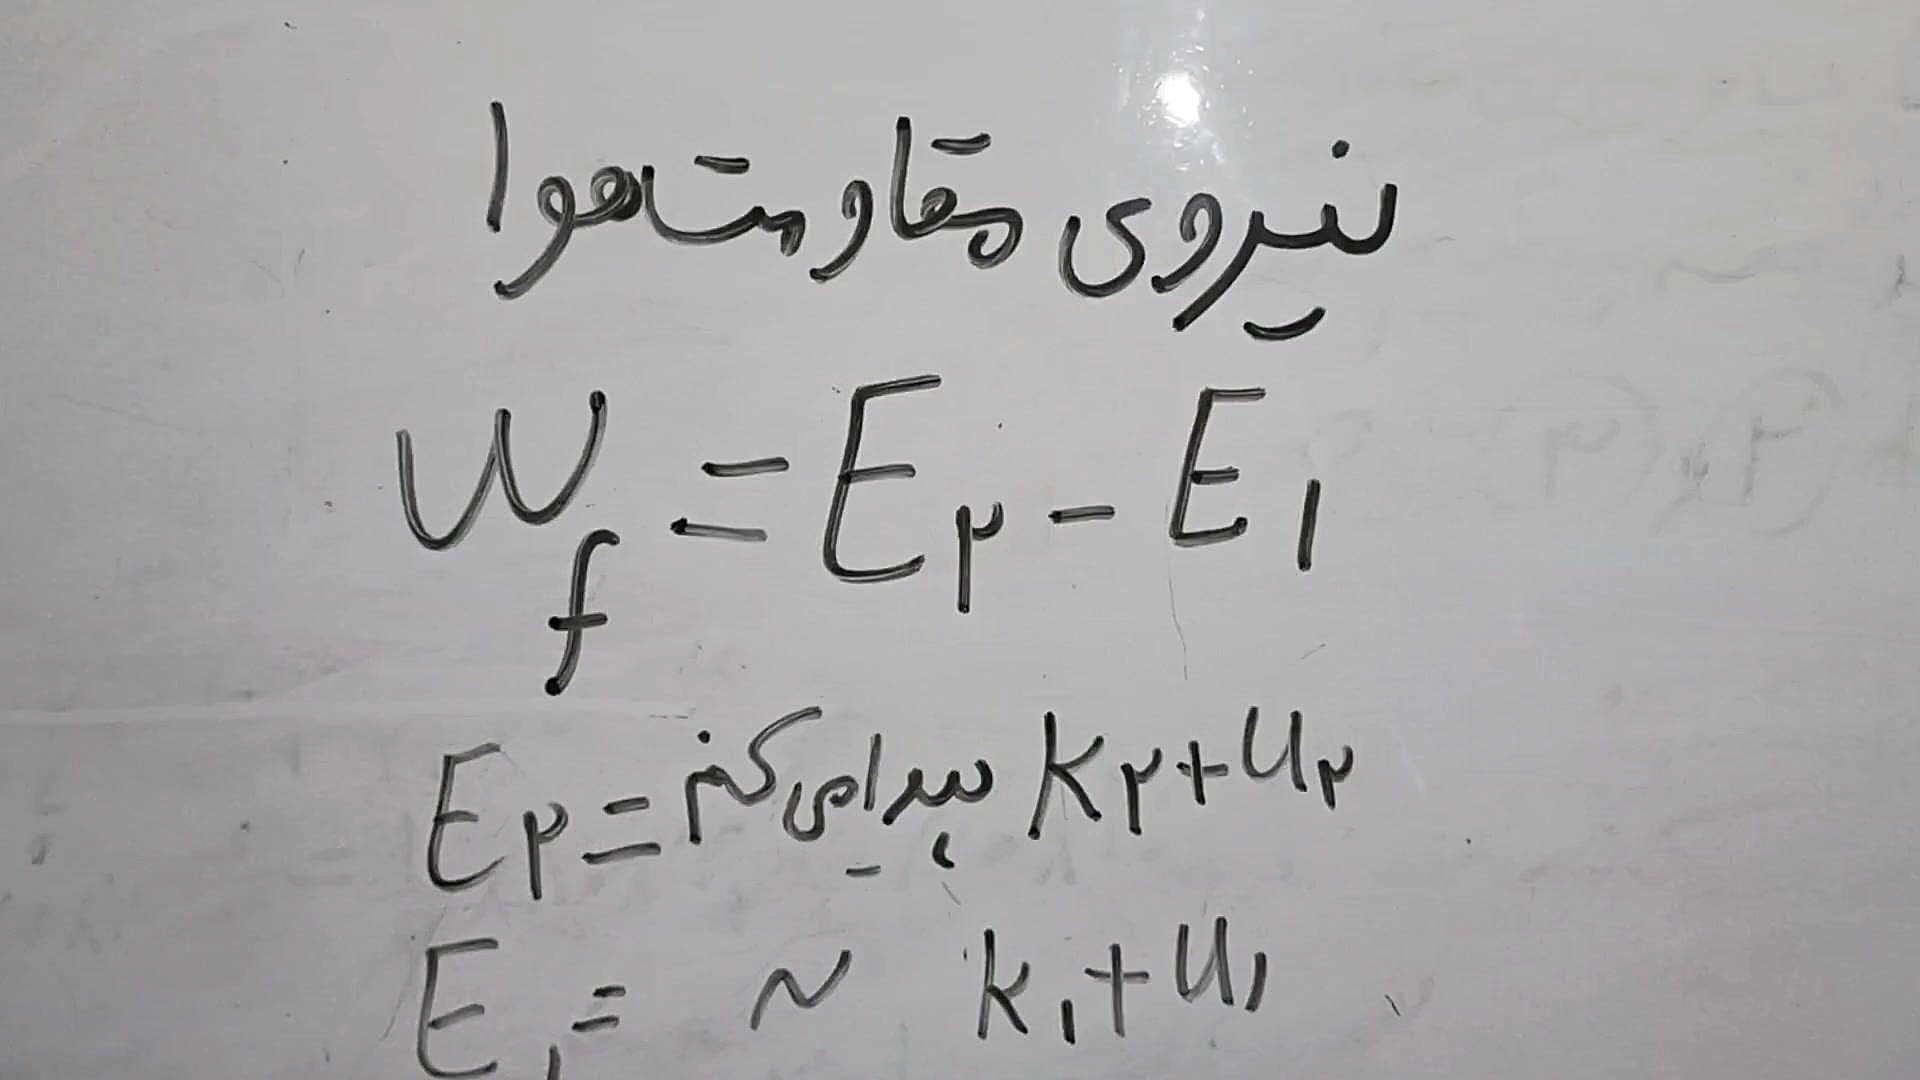 نیروی مقاومت هوا
W_f = E۲ - E۱
E۲ = پیدا می کنیم K۲+U۲
E۱ = ~ K۱+U۱